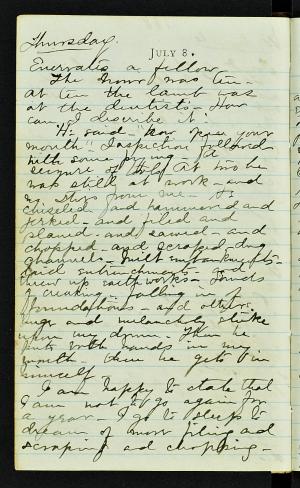 Thursday.
JULY 8.
Enervates a fellow
The hour was ten -
at ten the lamb was
at the dentists - How
can I describe it!
He said - "now open your
mouth" - Inspection followed
with some
seizure of At two he
was still at work - and
from me - He
chiseled and hammered and
jerked - and filed and
planed - and sawed - and
chopped - and scraped - dug
channels - built embankments -
laid entrenchments - and
threw up earthworks -
- falling in
foundations - and
and melancholy
upon my Then he
puts both hands in my
mouth - then he gets in
himself
I am happy to state that
I am not to go again for
a year - I go to sleep to
dream of more filing and
scraping and chopping -